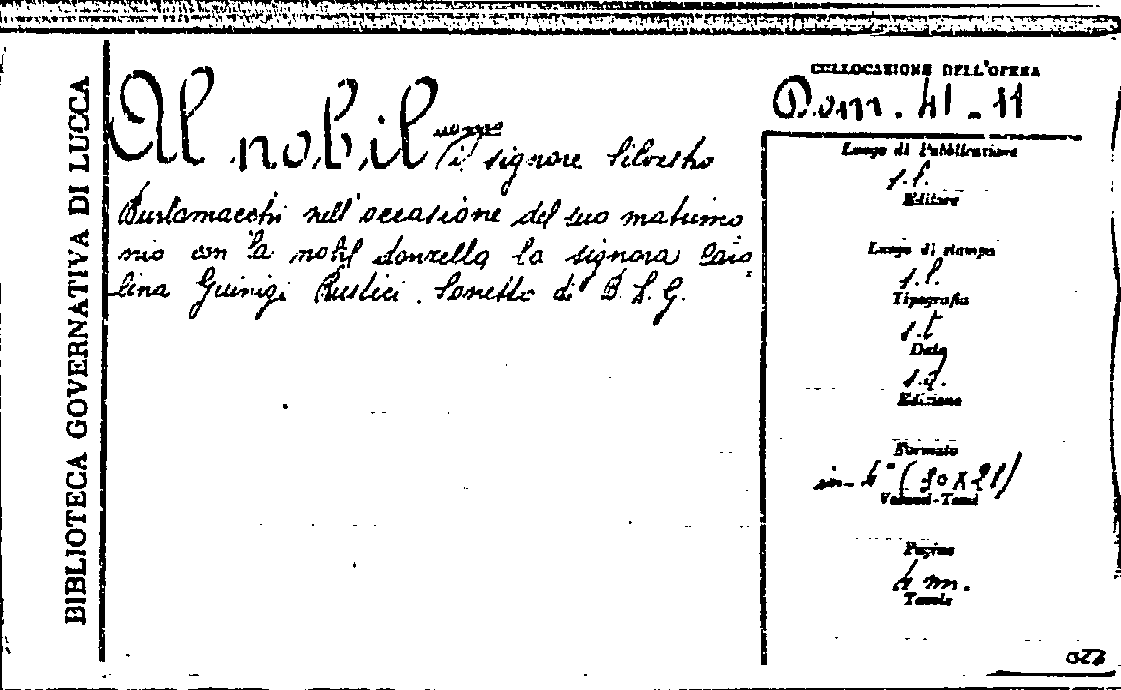 BIBLIOTECA GOVERNATIVA DI LUCCA
Al nobil uomo
il signore Silvestro
Burlamacchi nell'occasione del suo matrimo
nio con la nobil donzella la signora Caro
lina Guinigi Rustici. Sonetto di B. L. G.
COLLOCAZIONE DELL'OPERA
Dom. 41-11
Luogo di Pubblicazione
s.l.
Editore
Luogo di stampa
s.l.
Tipografia
s.t
Data
s.d.
Edizione
Formato
in-4° (30x21)
Volumi-Tomi
Pagine
4 nn.
Tavole